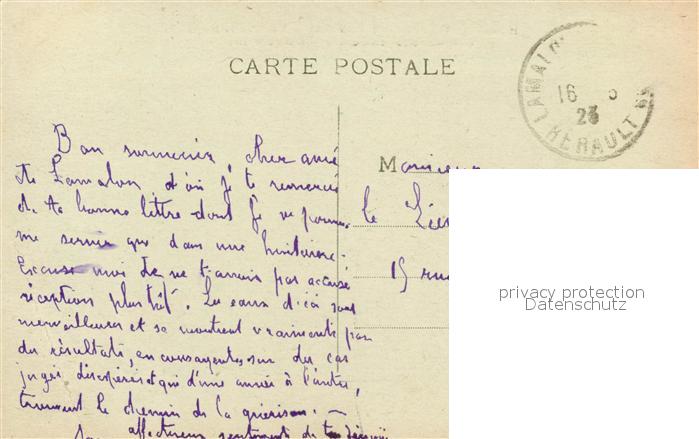 CARTE POSTALE
LAMALOU
16 5
23
HERAULT
Bon souvenir, cher ami
de Lamalou, d'où je te remercie
de ta bonne lettre dont je ne pourrai
me servir que dans une huitaine.
Excuse moi de ne t'avoir pas accusé
réception plus tôt. Les eaux d'ici sont
merveilleuses et se montrent vraiment par
des résultats, sur des cas
jugés désespérés et qui d'une année à l'autre,
trouvent le chemin de la guérison. —
affectueux sentiments de
Monsieur
le
15 rue
privacy protection
Datenschutz